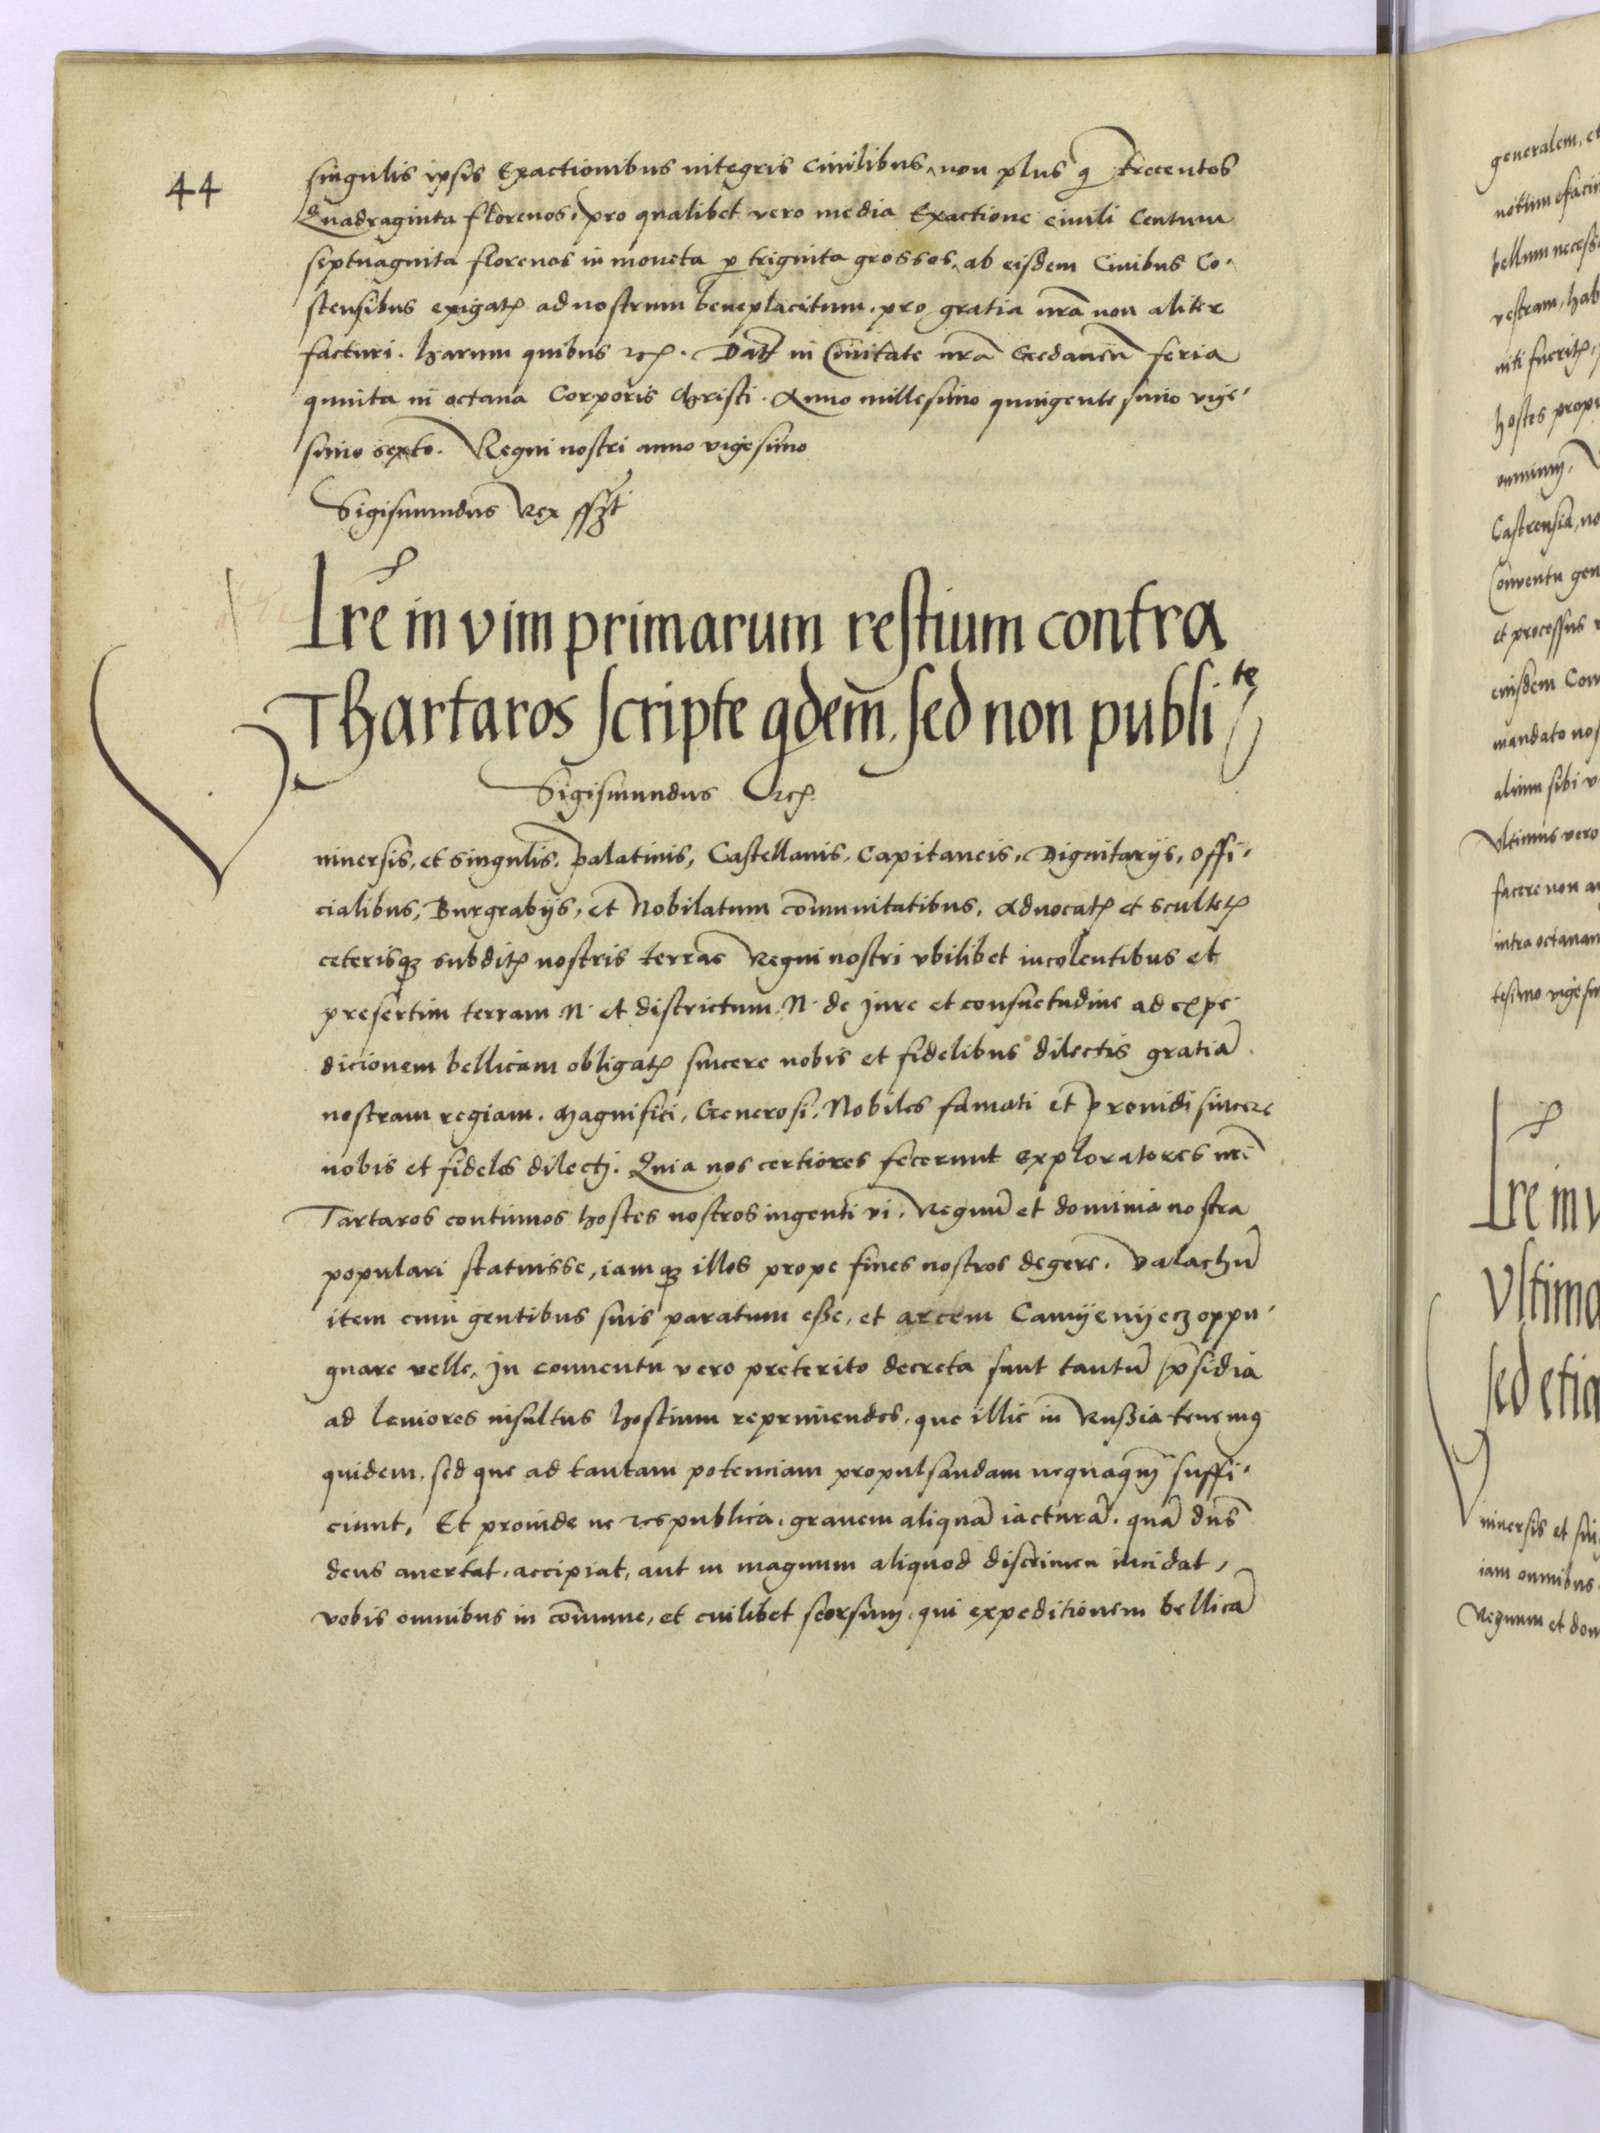 44
singulis ipsis Exactionibus integris Civilibus, non plus qȝ trecentos
Quadraginta florenos, pro qualibet vero media Exactione civili Centum
septuaginta florenos in moneta p triginta grossos, ab eisdem Civibus Co-
stensibus exigatꝭ ad nostrum beneplacitum, pro gratia nrā non aliter
facturi. harum quibus rcꝭ. Datt in Civitate nrā Gedanen̄ feria
quinta in octava Corporis Christi. Anno millesimo quingentesimo vige-
simo sexto. Regni nostri anno vigesimo
Sigismundus Rex sszt
Lrē in vim primarum restium contra
Thartaros scripte qdem̄. sed non publi te
Sigismundus rcꝭ.
Vniversis, et singulis, palatinis, Castellanis, Capitaneis, Dignitarijs, offi-
cialibus, Burgrabijs, et Nobilatum com̄unitatibus, Advocatꝭ et scultetꝭ
ceterisqȝ subditꝭ nostris terras Regni nostri vbilibet incolentibus et
presertim terram N. et districtum N. de jure et consuetudine ad expe-
dicionem bellicam obligatꝭ sincere nobis et fidelibus dilectis gratiā
nostram regiam. Magnifici, Generosi, Nobiles famati et providi sincere
nobis et fideles dilecti. Quia nos certiores fecerunt exploratores nrī
Tartaros continuos hostes nostros ingenti vi, Regnū et dominia nostra
populari statuisse, iamqȝ illos prope fines nostros degere. Valachū
item cum gentibus suis paratum esse, et arcem Camijenijecz oppu-
gnare velle, In conventu vero preterito decreta sunt tantū p̄sidia
ad leviores insultus hostium reprimendos, que illic in Russia tenemꝰ
quidem, sed que ad tantam potenciam propulsandam nequaqm̄ suffi-
ciunt, Et proinde ne respublica, gravem aliquā iacturā, quā dn̄s
deus avertat, accipiat, aut in magnum aliquod discrimen incidat,
vobis omnibus in com̄une, et cuilibet seorsum, qui expeditionem bellicā
generalem, et
bellum necess
vestram, hab
niti fueritꝭ,
hostes prop
Castrensia, no
Conventu gen
et processus
eiusdem Com
mandato nos
alium sibi v
Vltimus vero
facere non a
intra octavam
tesimo vigesim
Lrē in v
Vltima
sed etia
Vniversis et sin
iam omnibus
Regnum et dom